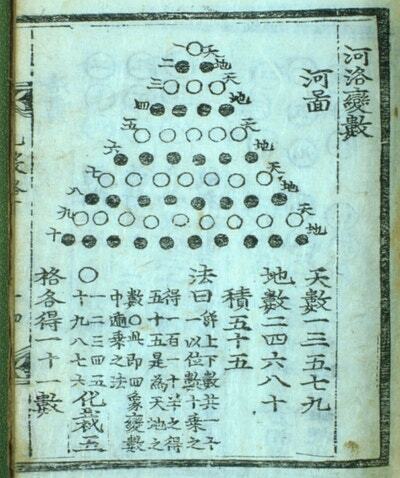 河洛變數
河圖
一天
二地
三天
四地
五天
六地
七天
八地
九天
十地
天數一三五七九
地數二四六八十
積五十五
法曰併上下數共一十
一以位數十乘之
得一百一十半之得
五十五是爲天地之
數〇此即四象變數
中遍乘之法
〇一二三四五
十九八七六
化裁五
格各得一十一數